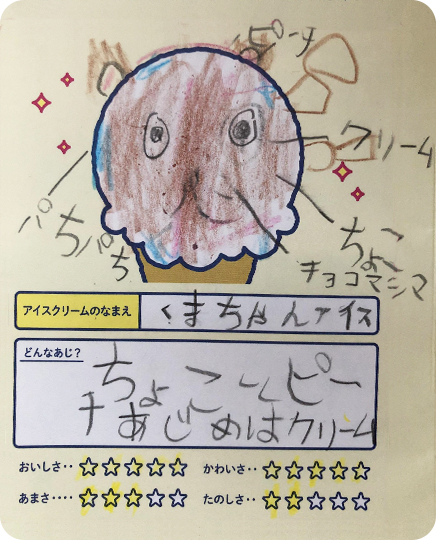 ピーチ
クリーム
ぱちぱち
ちょこ
チョコマシマ
アイスクリームのなまえ
くまちゃんアイス
どんなあじ?
ちょことピー
チあじめはクリーム
おいしさ‥
かわいさ‥
あまさ‥‥
たのしさ‥